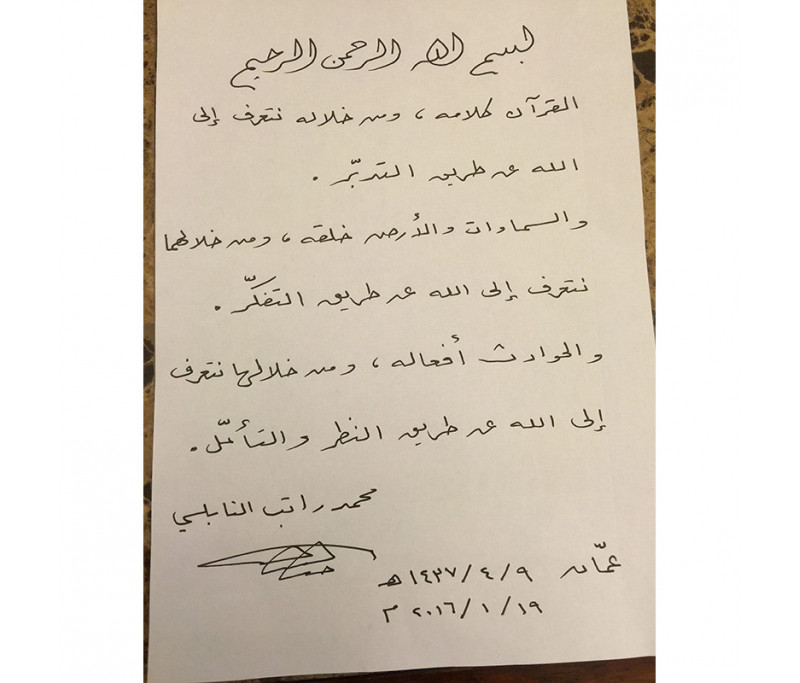 بسم الله الرحمن الرحيم
القرآن كلامه، ومن خلاله نتعرف إلى
الله عن طريق التدبّر.
والسماوات والأرض خلقه، ومن خلالهما
نتعرف إلى الله عن طريق التفكّر.
والحوادث أفعاله، ومن خلالها نتعرف
إلى الله عن طريق النظر والتأمّل.
محمد راتب النابلسي
عمّان ٩ / ٤ / ١٤٣٧ هـ
١٩ / ١ / ٢٠١٦ م